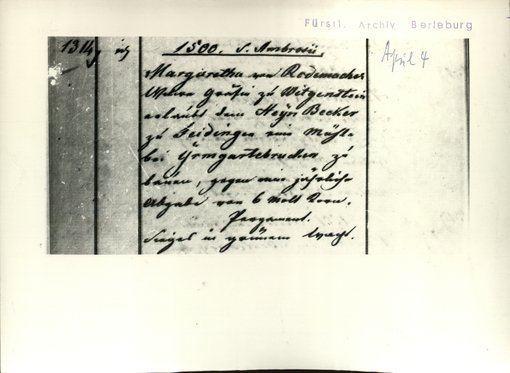 Fürstl. Archiv Berleburg
1314
1500. S. Ambrosii
April 4
Margaretha von Rodemachen
Wittwe Gräfin zu Witgenstein
erlaubt dem Heyn Becker
zu Feidingen eine Mühle
bei Yrmgartebrucken zu
bauen, gegen eine jährliche
Abgabe von 6 Molt Korn.
Pergament.
Siegel in grünem Wachs.